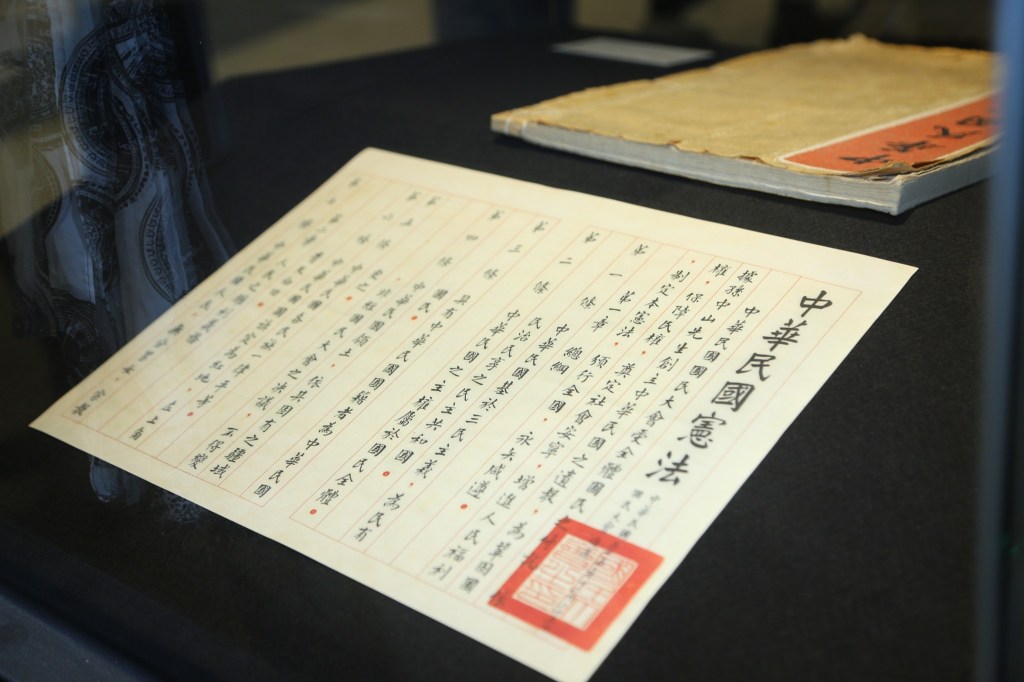 中華民國憲法
中華民國國民大會受全體國民
據孫中山先生創立中華民國之遺教。為鞏固國
權。保障民權。奠定社會安寧。增進人民福利
。制定本憲法。頒行全國。永矢咸遵。
第一章 總綱
第一條 中華民國基於三民主義。為民有
民治民享之民主共和國
第二條 中華民國之主權屬於國民全體。
第三條 具有中華民國國籍者為中華民國
國民。
第四條 中華民國領土。依其固有之疆域
非經國民大會之決議。不得變
更之。
第五條 中華民國各民族一律平等。
第六條 中華民國國旗定為紅地。左上角